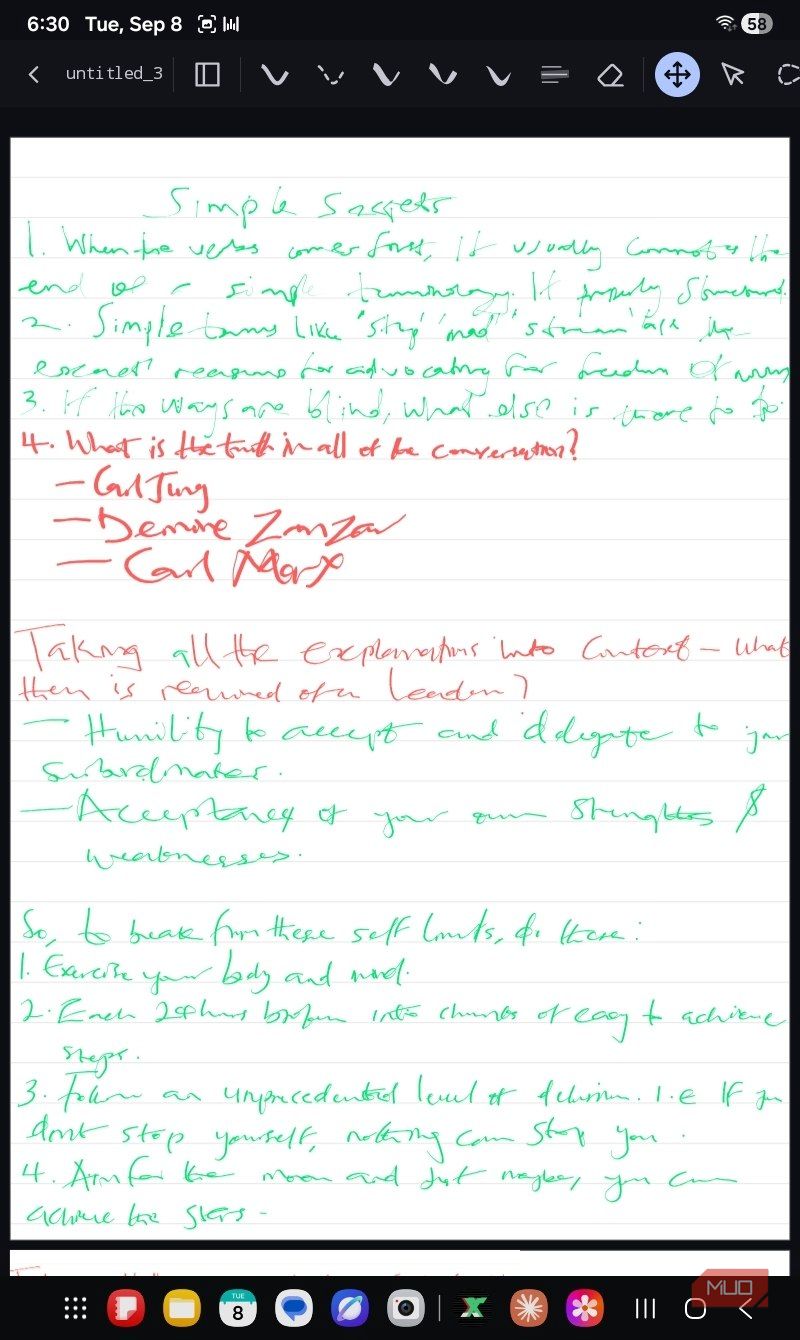 6:30 Tue, Sep 8 58
untitled_3
Simple Secrets
1. When the verbs comes first, it usually connotes the
end of a simple terminology. If properly structured.
2. Simple terms like "stop" "mad" "stream" are the
reasons for advocating for freedom of
3. If the ways are blind, what else is there to
4. What is the truth in all of the conversation?
- Carl Jung
- Zanzar
- Carl Marx
Taking all the explanations into Context - What
then is required of a Leader?
- Humility to accept and delegate to your
subordinates.
- Acceptancy of your own Strenghts &
weaknesses.
So, to break from these self limits, do these:
1. Exercise your body and mind.
2. Each 24hrs broken into chunks of easy to achieve
steps.
3. Follow an unprecedented level of delusion. I.e If you
dont stop yourself, nothing can stop you.
4. Aim for the moon and just maybe, you can
achieve the stars.
TUE
8
MUO